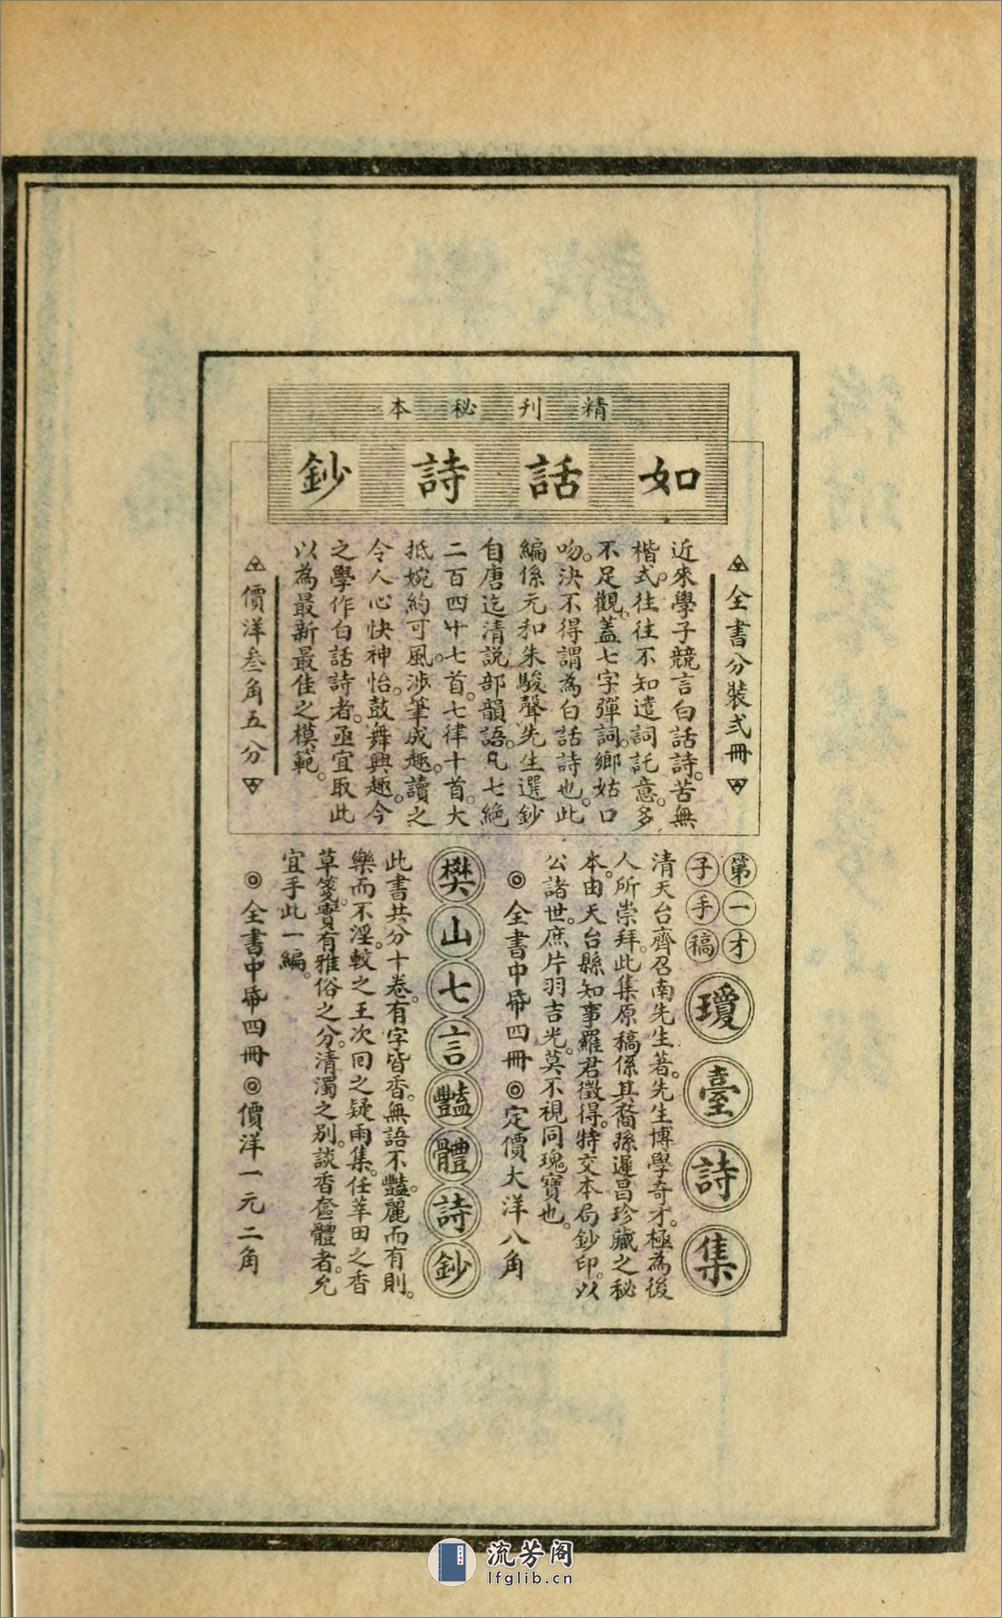 精刊秘本
如話詩鈔
全書分裝弍冊
近來學子競言白話詩。苦無
楷式。往往不知遣詞託意。多
不足觀。蓋七字彈詞。鄉姑口
吻。決不得謂為白話詩也。此
編係元和朱駿聲先生選鈔
自唐迄清說部韻語。凡七絕
二百四十七首。七律十首。大
抵婉約可風。涉筆成趣。讀之
令人心快神怡。鼓舞興趣。今
之學作白話詩者。亟宜取此
以為最新最佳之模範。
價洋叁角五分
第一才
子手稿
瓊臺詩集
清天台齊召南先生著。先生博學奇才。極為後
人所崇拜。此集原稿係其裔孫遲昌珍藏之秘
本。由天台縣知事羅君徵得。特交本局鈔印。以
公諸世。庶片羽吉光。莫不視同瑰寶也。
◎全書中帋四冊◎定價大洋八角
樊山七言豔體詩鈔
此書共分十卷。有字皆香。無語不豔。麗而有則。
樂而不淫。較之王次回之疑雨集。任莘田之香
草箋。實有雅俗之分。清濁之別。談香奩體者。允
宜手此一編。
◎全書中帋四冊◎價洋一元二角
流芳阁
lfglib.cn